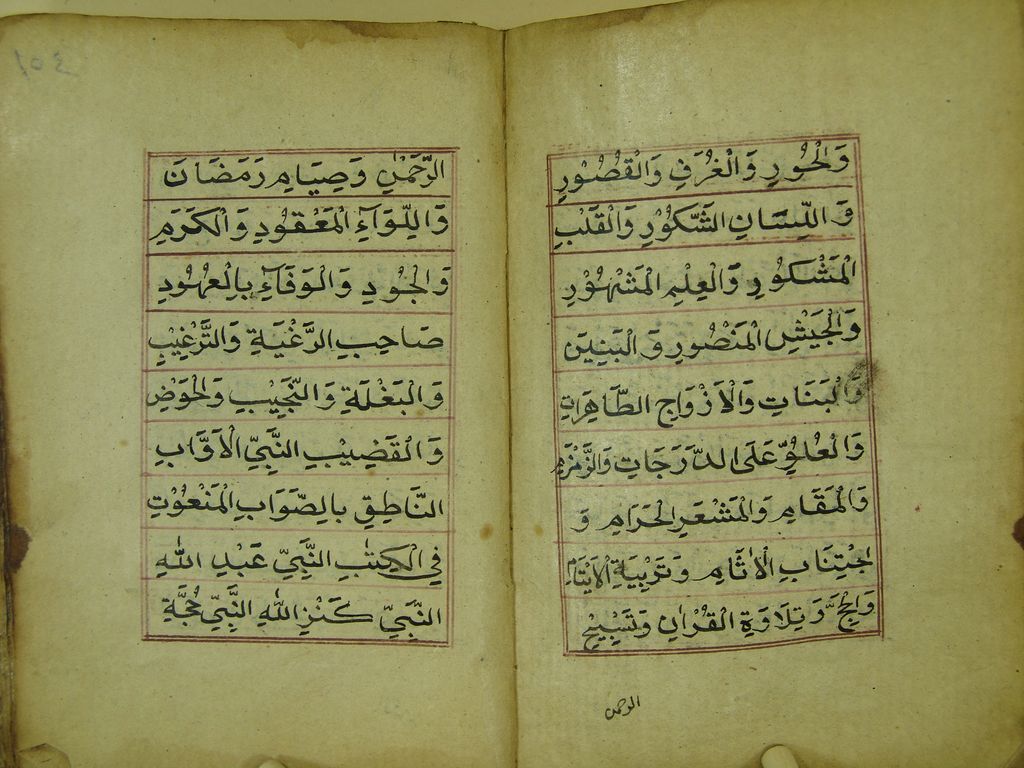 وَالْحُورِ وَالْغُرَفِ وَالْقُصُوْرِ
وَاللِّسَانِ الشَّكُوْرِ وَالْقَلْبِ
الْمَشْكُوْرِ وَالْعِلْمِ الْمَشْهُوْرِ
وَالْجَيْشِ الْمَنْصُورِ وَالْبَنِيْنَ
وَالْبَنَاتِ وَالْاَزْوَاجِ الطَّاهِرَاتِ
وَالْعُلُوِّ عَلَى الدَّرَجَاتِ وَالزَّمْزَمِ
وَالْمَقَامِ وَالْمَشْعَرِ الْحَرَامِ وَ
اجْتِنَابِ الْاٰثَامِ وَتَرْبِيَةِ الْاَيْتَامِ
وَالْحَجِّ وَتِلَاوَةِ الْقُرْاٰنِ وَتَسْبِيْحِ
الرحمن
١٥٤
الرَّحْمٰنِ وَصِيَامِ رَمَضَانَ
وَاللِّوَآءِ الْمَعْقُوْدِ وَالْكَرَمِ
وَالْجُوْدِ وَالْوَفَآءِ بِالْعُهُوْدِ
صَاحِبِ الرَّغْبَةِ وَالتَّرْغِيْبِ
وَالْبَغْلَةِ وَالنَّجِيْبِ وَالْحَوْضِ
وَالْقَضِيْبِ النَّبِيِّ الْاَوَّابِ
النَّاطِقِ بِالصَّوَابِ الْمَنْعُوْتِ
فِي الْكِتٰبِ النَّبِيِّ عَبْدِ اللّٰهِ
النَّبِيِّ كَنْزِ اللّٰهِ النَّبِيِّ حُجَّةِ